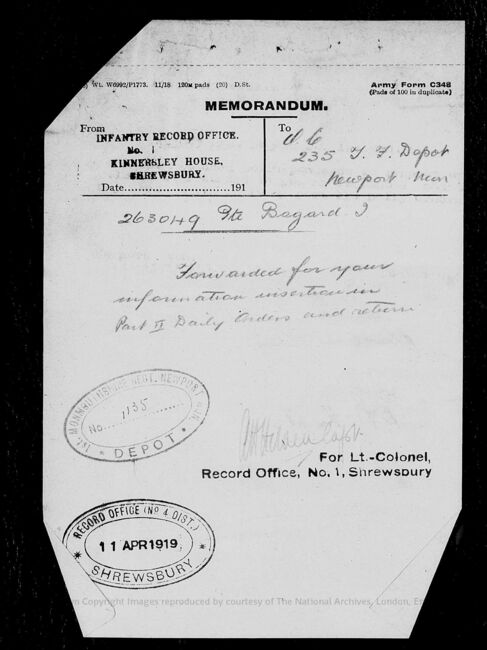 Wt. W6992/P1773. 11/18 120M pads (20) D.St.
Army Form C348
(Pads of 100 in duplicate)
MEMORANDUM.
From
INFANTRY RECORD OFFICE.
No. 1
KINNERSLEY HOUSE,
SHREWSBURY.
Date 191
To
O C
235 T. F. Depot
Newport Mon
263049 Pte Bagard J
Forwarded for your
information insertion in
Part II Daily Orders and return
1st MONMOUTHSHIRE REGT. NEWPORT MON.
No. 1135
DEPOT
Capt
For Lt.-Colonel,
Record Office, No. 1, Shrewsbury
RECORD OFFICE (No 4 DIST.)
11 APR 1919
SHREWSBURY
Copyright Images reproduced by courtesy of The National Archives, London, E